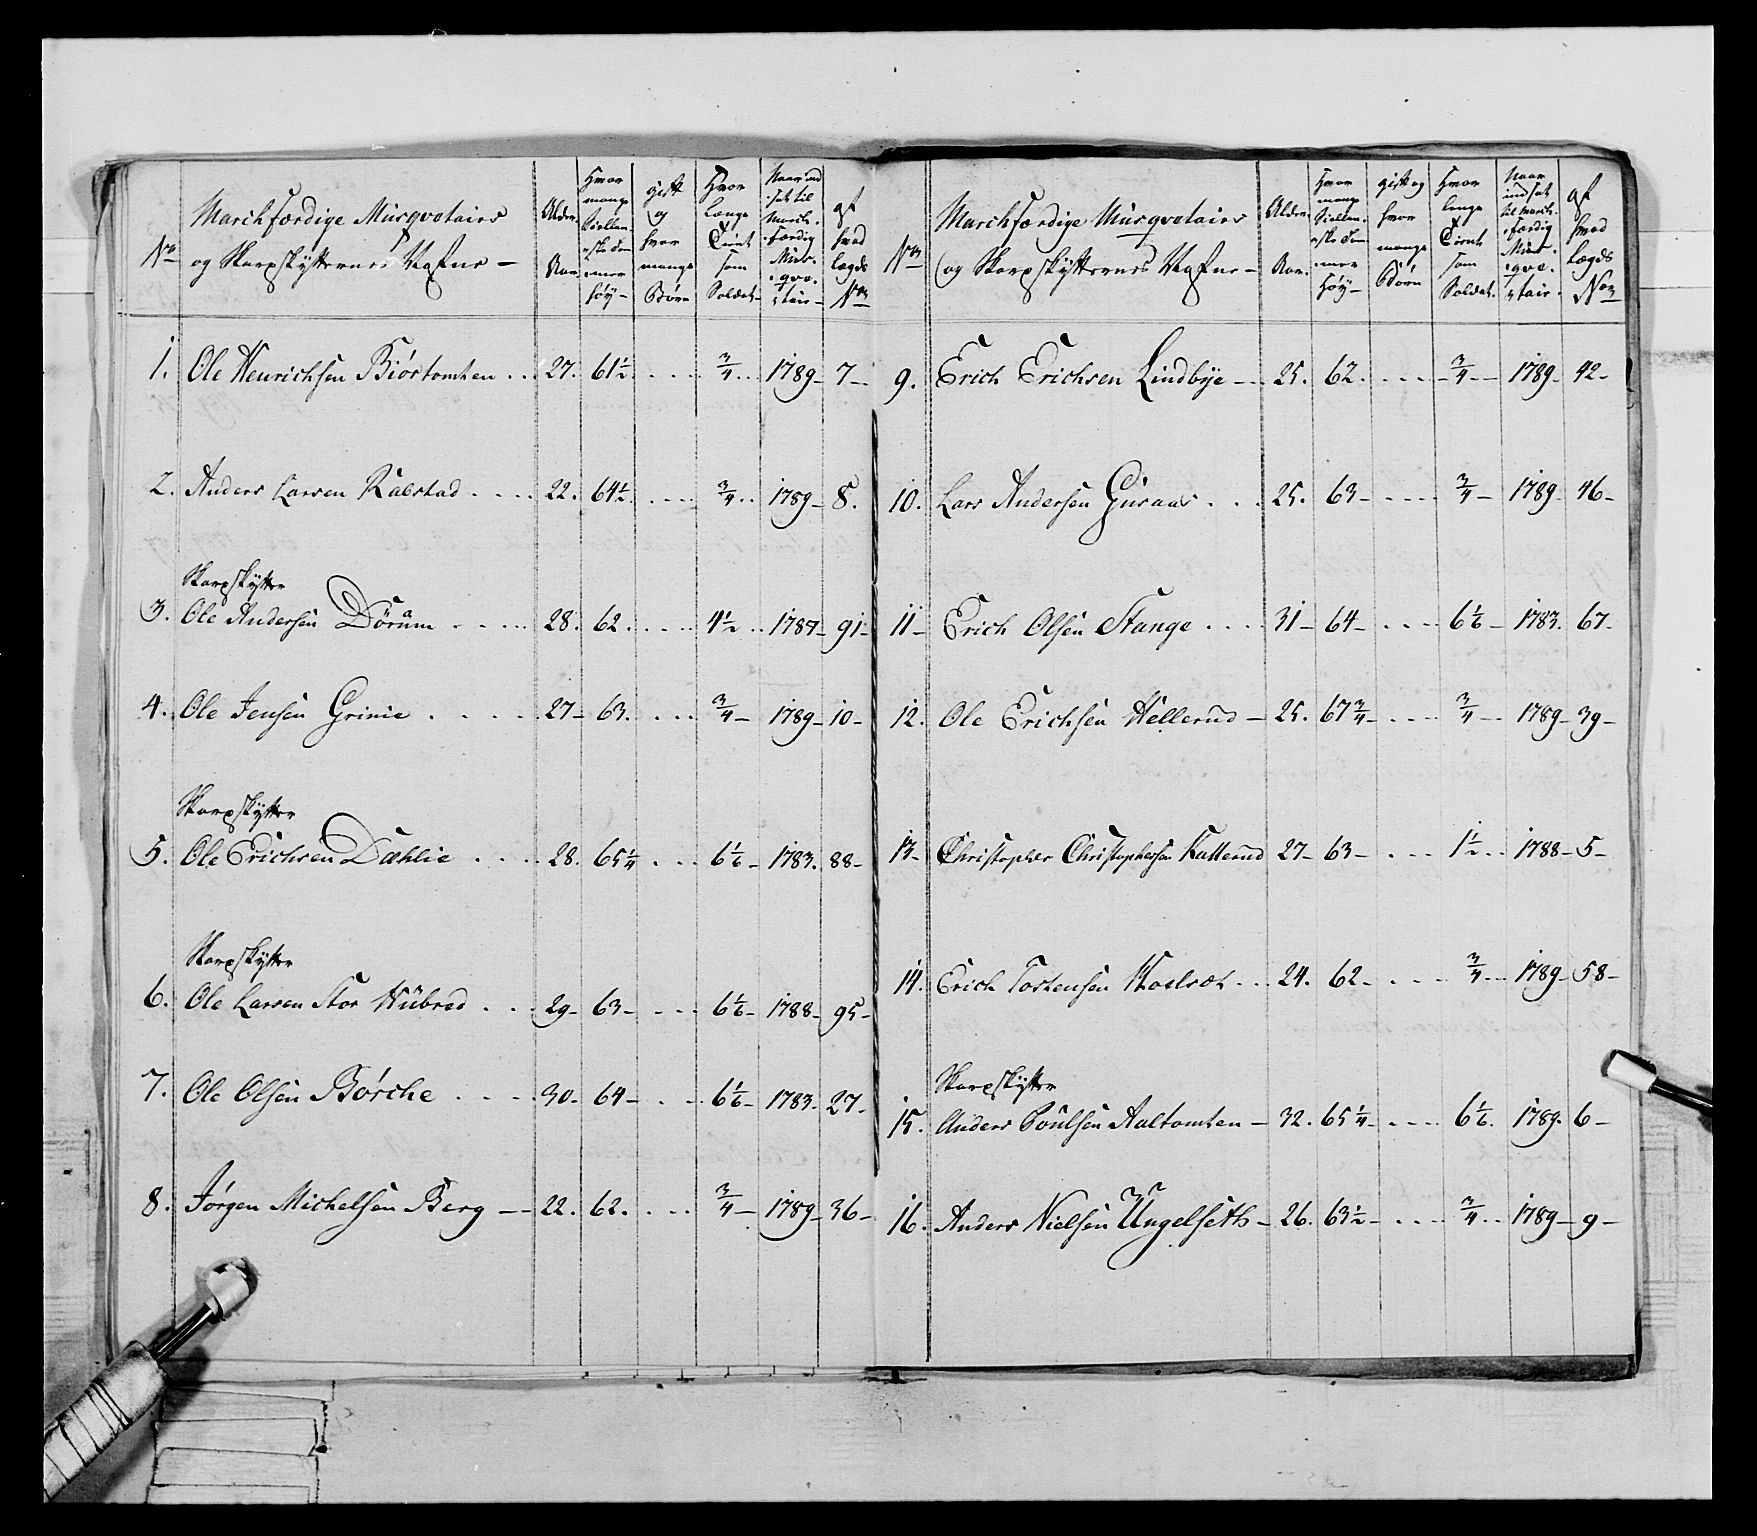 No
Marchfærdige Musqvetairs
og Skarpskytternes Nafne –
Alder. Aar.
Hvor mange Siellandske Tommer höy –
gift og hvor mange Börn
Hvor Længe Tient som Soldat –
Naar indsat til Marchfærdig Musqvetair –
af hvad Lægds No
1. Ole Henrichsen Biörtomten . . 27. 61½ . . . . ¾ . . 1789 – 7 –
2. Anders Larsen Kalstad . . . . 22. 64½ . . . . ¾ . . 1789 – 8.
Skarpskytter
3. Ole Andersen Dörum . . . . 28. 62. . . . . 4½ . . 1787 – 91 –
4. Ole Jensen Grinie . . . . . 27 – 63. . . . ¾ – 1789 – 10 –
Skarpskytter
5. Ole Erichsen Dæhlie . . . . 28. 65¼ . . . 6⅙ – 1783. 88 –
Skarpskytter
6. Ole Larsen Stor Hübred . . . 29 – 63 – . . . 6⅙ – 1788 – 95 –
7. Ole Olsen Börche . . . . 30. 64 – . . . 6⅙ – 1783. 27 –
8. Jörgen Michelsen Berg – – 22. 62. . . . ¾ – 1789 – 36 –
No
Marchfærdige Musqvetairs
og Skarpskytternes Nafne –
Alder. Aar.
Hvor mange Siellandske Tommer höy –
gift og hvor mange Börn
Hvor lenge Tient som Soldat.
Naar indsat til March-færdig Musqvetair.
af hvad Lægds No
9. Erich Erichsen Lindbye – – 25. 62. . . . – ¾ – 1789 – 42 –
10. Lars Andersen Guraas . . . 25. 63 – . . . . ¾ – 1789 – 46 –
11 – Erich Olsen Stange . . . . 31 – 64 – . . . . 6⅙ – 1783. 67 –
12. Ole Erichsen Hellerud – 25. 67¾ – . . . ¾ – 1789 – 39 –
13 – Christopher Christophersen Kallerud 27 – 63 – . . . 1½ . . 1788 – 5 –
14. Erich Tostensen . . . 24. 62 – . . . . ¾ – 1789 – 58 –
Skarpskytter
15. Anders Poulsen Aaltomten – 32. 65¼ – . . . 6⅙. 1789. 6 –
16. Anders Nielsen Ungelseth – 26. 63½ – . . . ¾ . . 1789 – 9 –